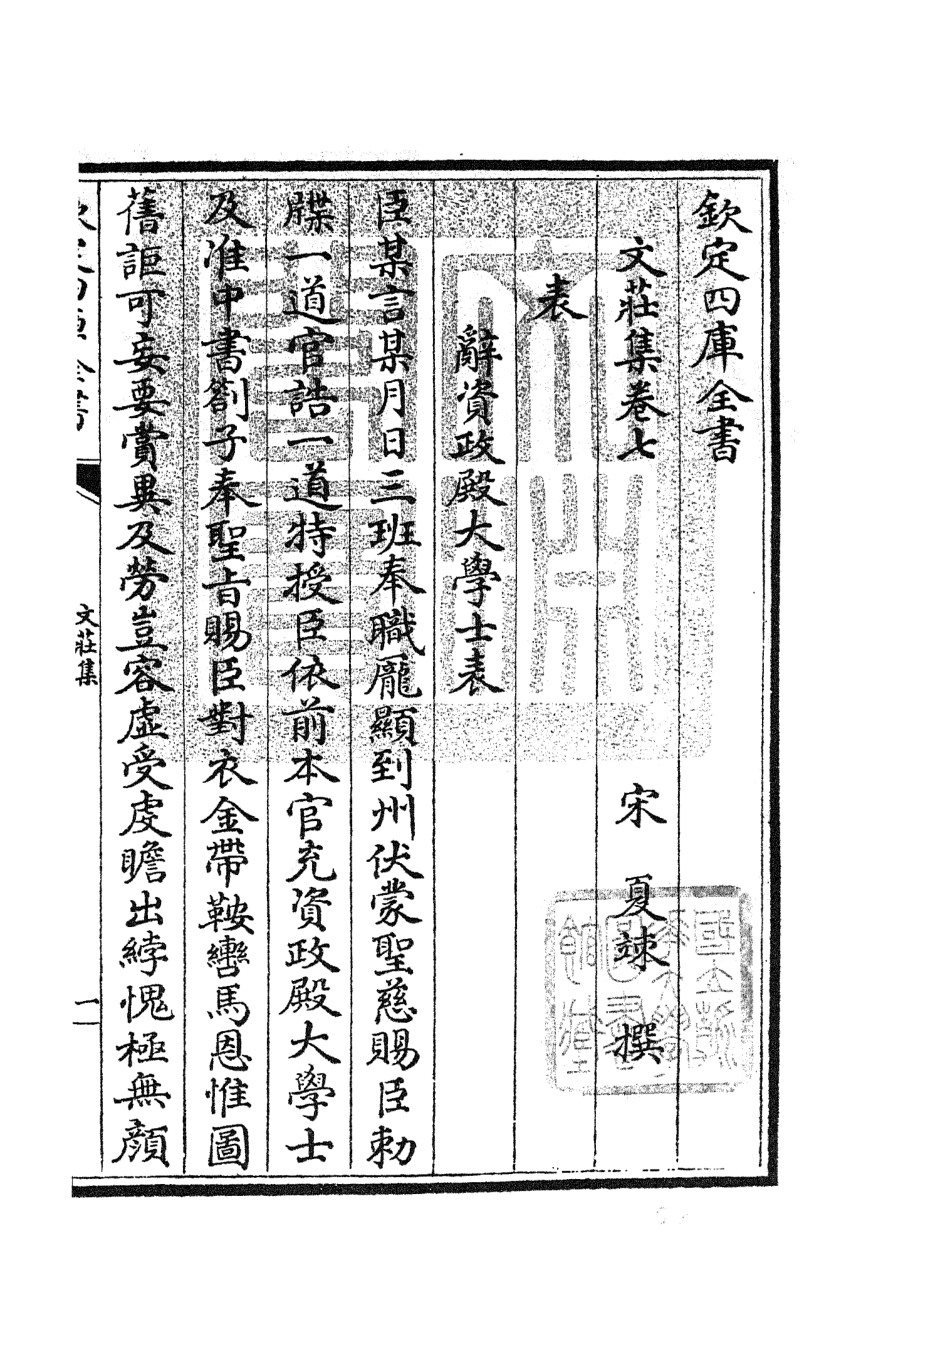 欽定四庫全書
文莊集卷七
宋 夏竦 撰
表
辭資政殿大學士表
臣某言某月日三班奉職龎顯到州伏蒙聖慈賜臣勅
牒一道官誥一道特授臣依前本官充資政殿大學士
及准中書劄子奉聖旨賜臣對衣金帶鞍轡馬恩惟圖
舊詎可妄要賞異及勞豈容虛受䖍瞻出綍愧極無顔
文莊集
一